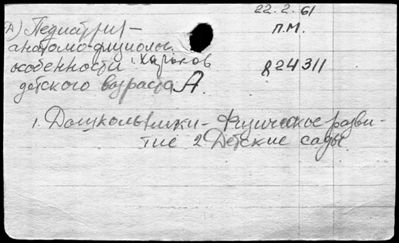 22.2.61
А) Педиатрия -
п.М.
анатомо-физиолог.
особенности г. Харьков
824311
детского возраста А.
1. Дошкольники - Физическое разви-
тие 2 Детские сады